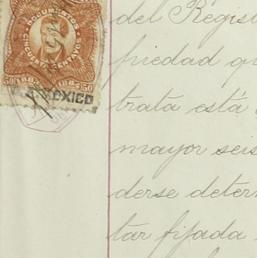 DOCUMENTOS
50
50
MEXICO
del Regist
piedad qu
trata está
mayor seis
derse deter
tar fijada